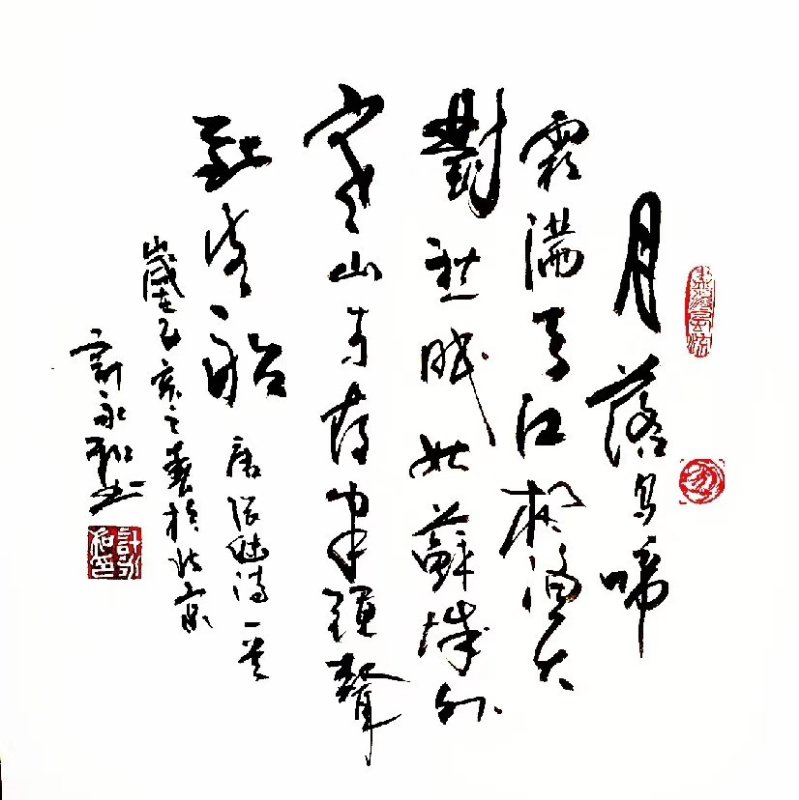 月落烏啼
霜滿天江楓漁火
對愁眠姑蘇城外
寒山寺夜半鐘聲
到客船 唐張繼詩一首
歲在己亥之春於北京
計永和書
計永和印